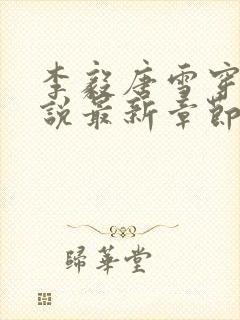 李毅唐雪穿
說最新章節
歸華堂